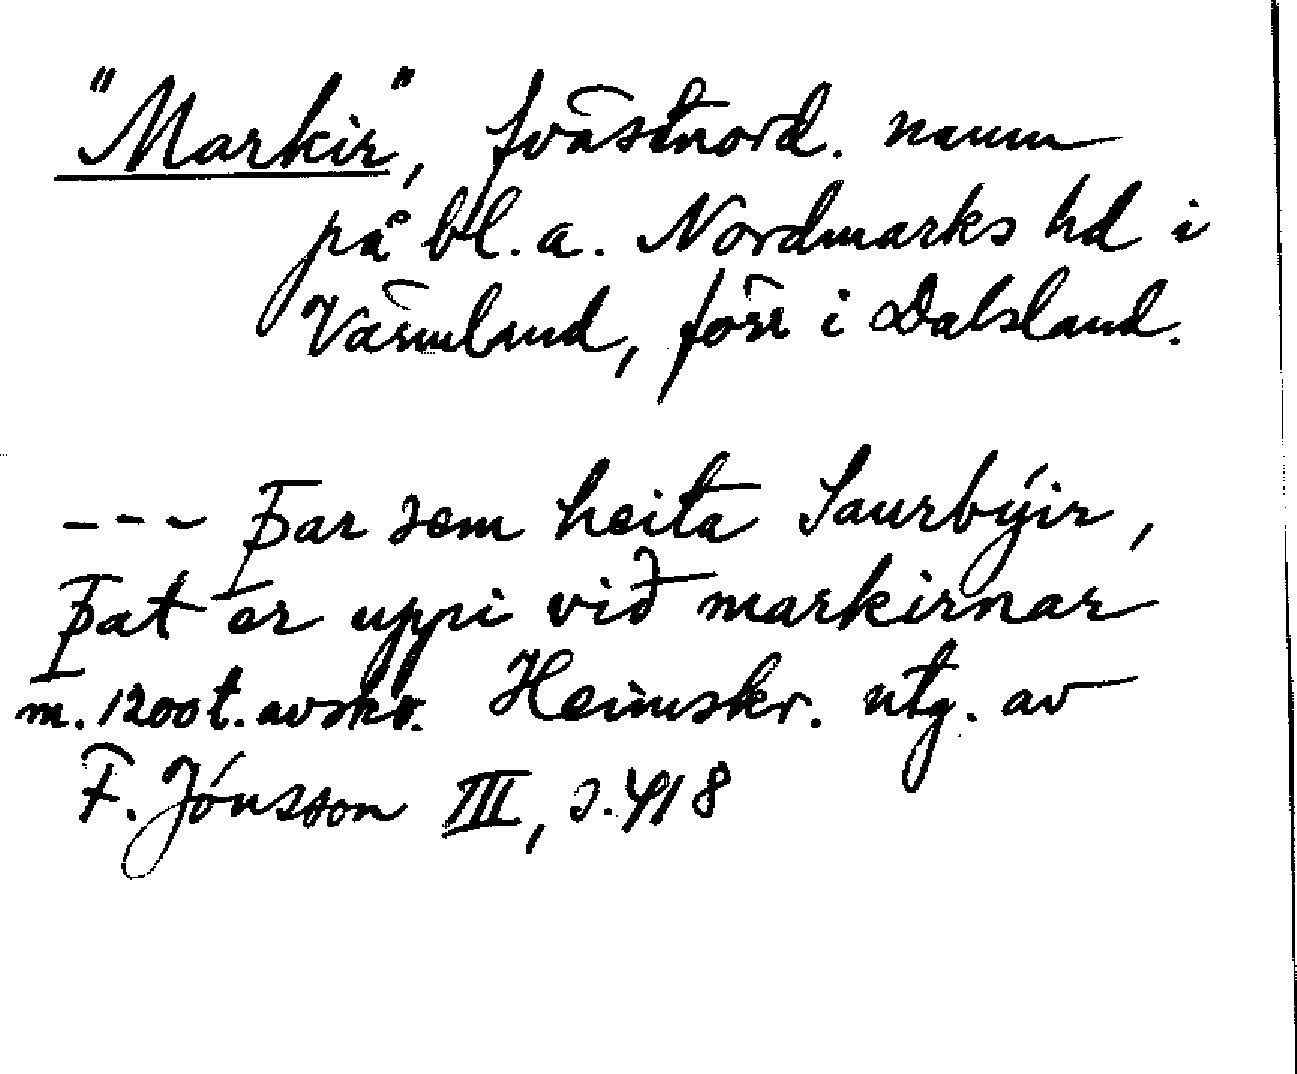 "Markir", fvästnord. namn
på bl. a. Nordmarks hd i
Värmland, förr i Dalsland.
--- Þar sem heita Saurbýir,
Þat er uppi við markirnar
m. 1200t. avskr. Heimskr. utg. av
F. Jónsson III, s. 418